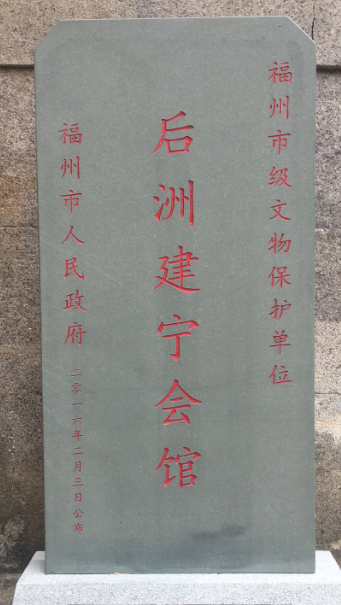 福州市级文物保护单位
后洲建宁会馆
福州市人民政府
二零一六年二月三日公布